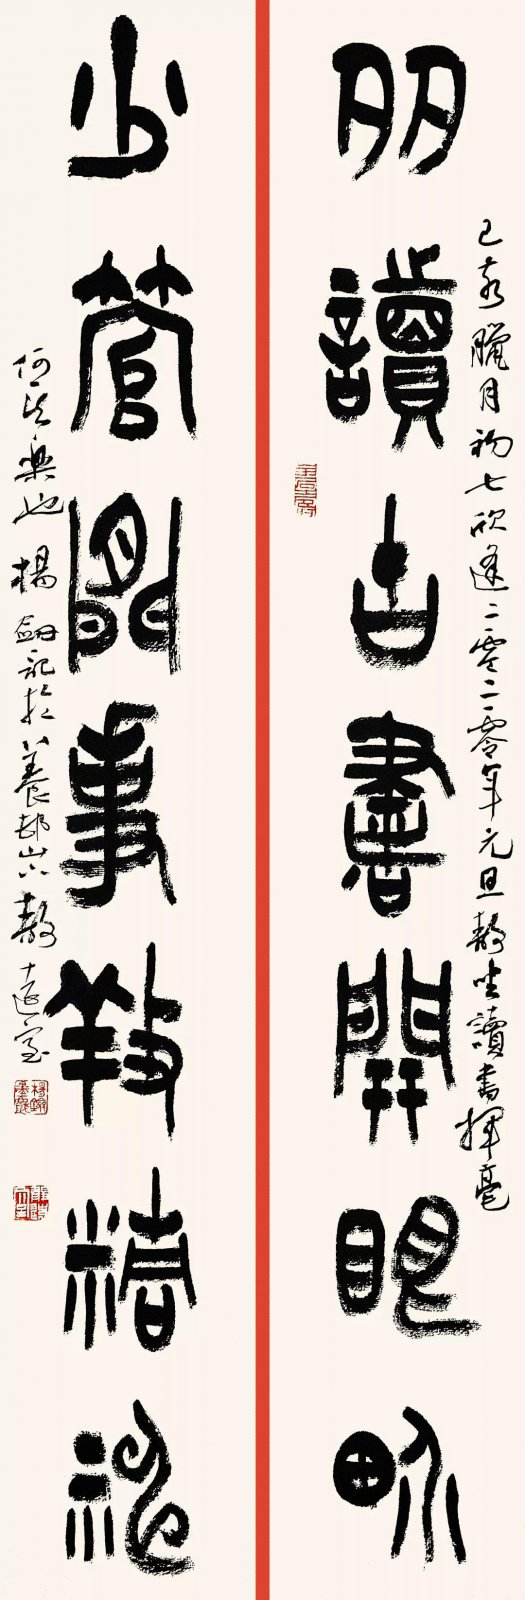 多讀古書開眼界
己亥臘月初七欣逢二零二零年元旦靜坐讀書揮毫
少管閒事養精神
何其樂也 楊劍記於養邨山下靜遠室